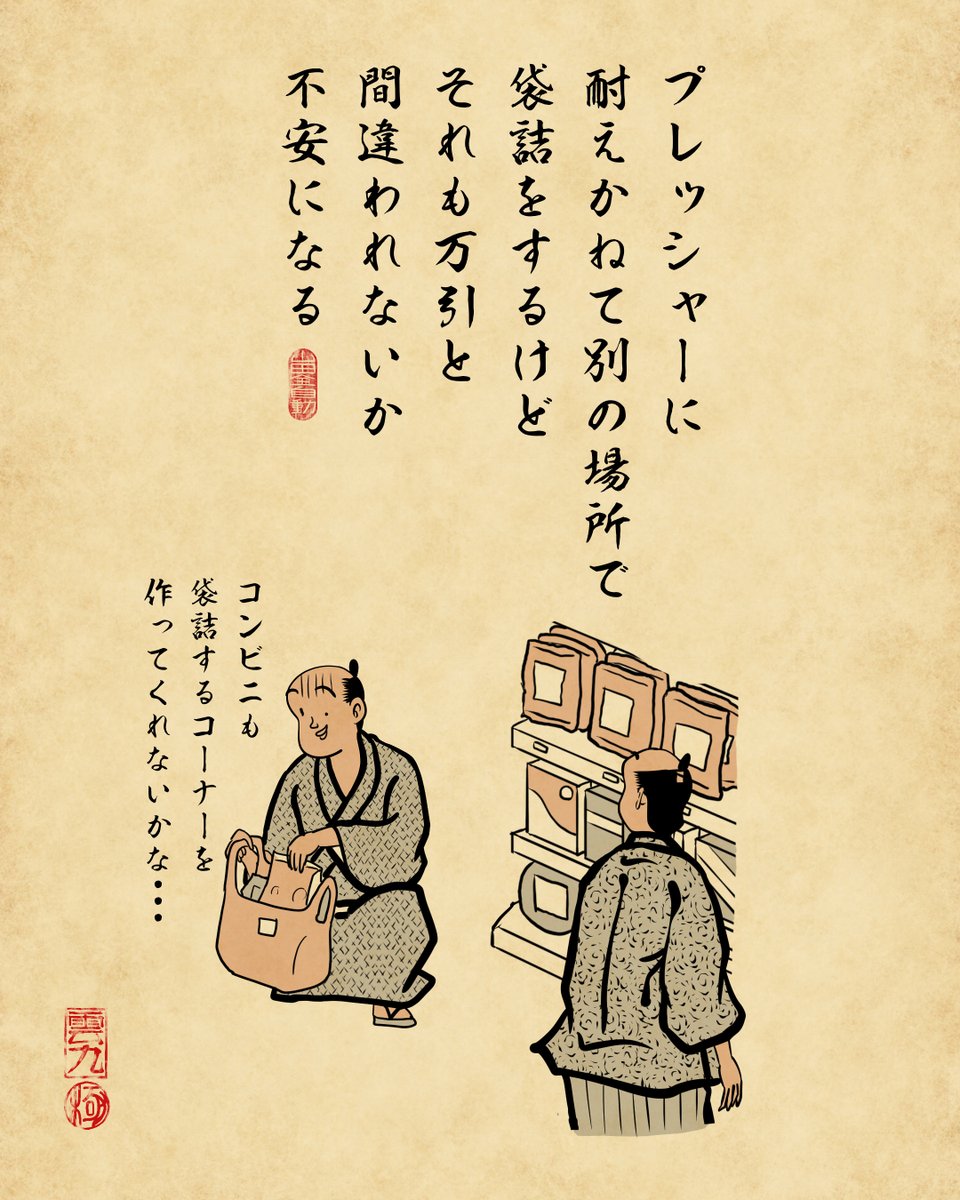 プレッシャーに
耐えかねて別の場所で
袋詰をするけど
それも万引と
間違われないか
不安になる
コンビニも
袋詰するコーナーを
作ってくれないかな・・・